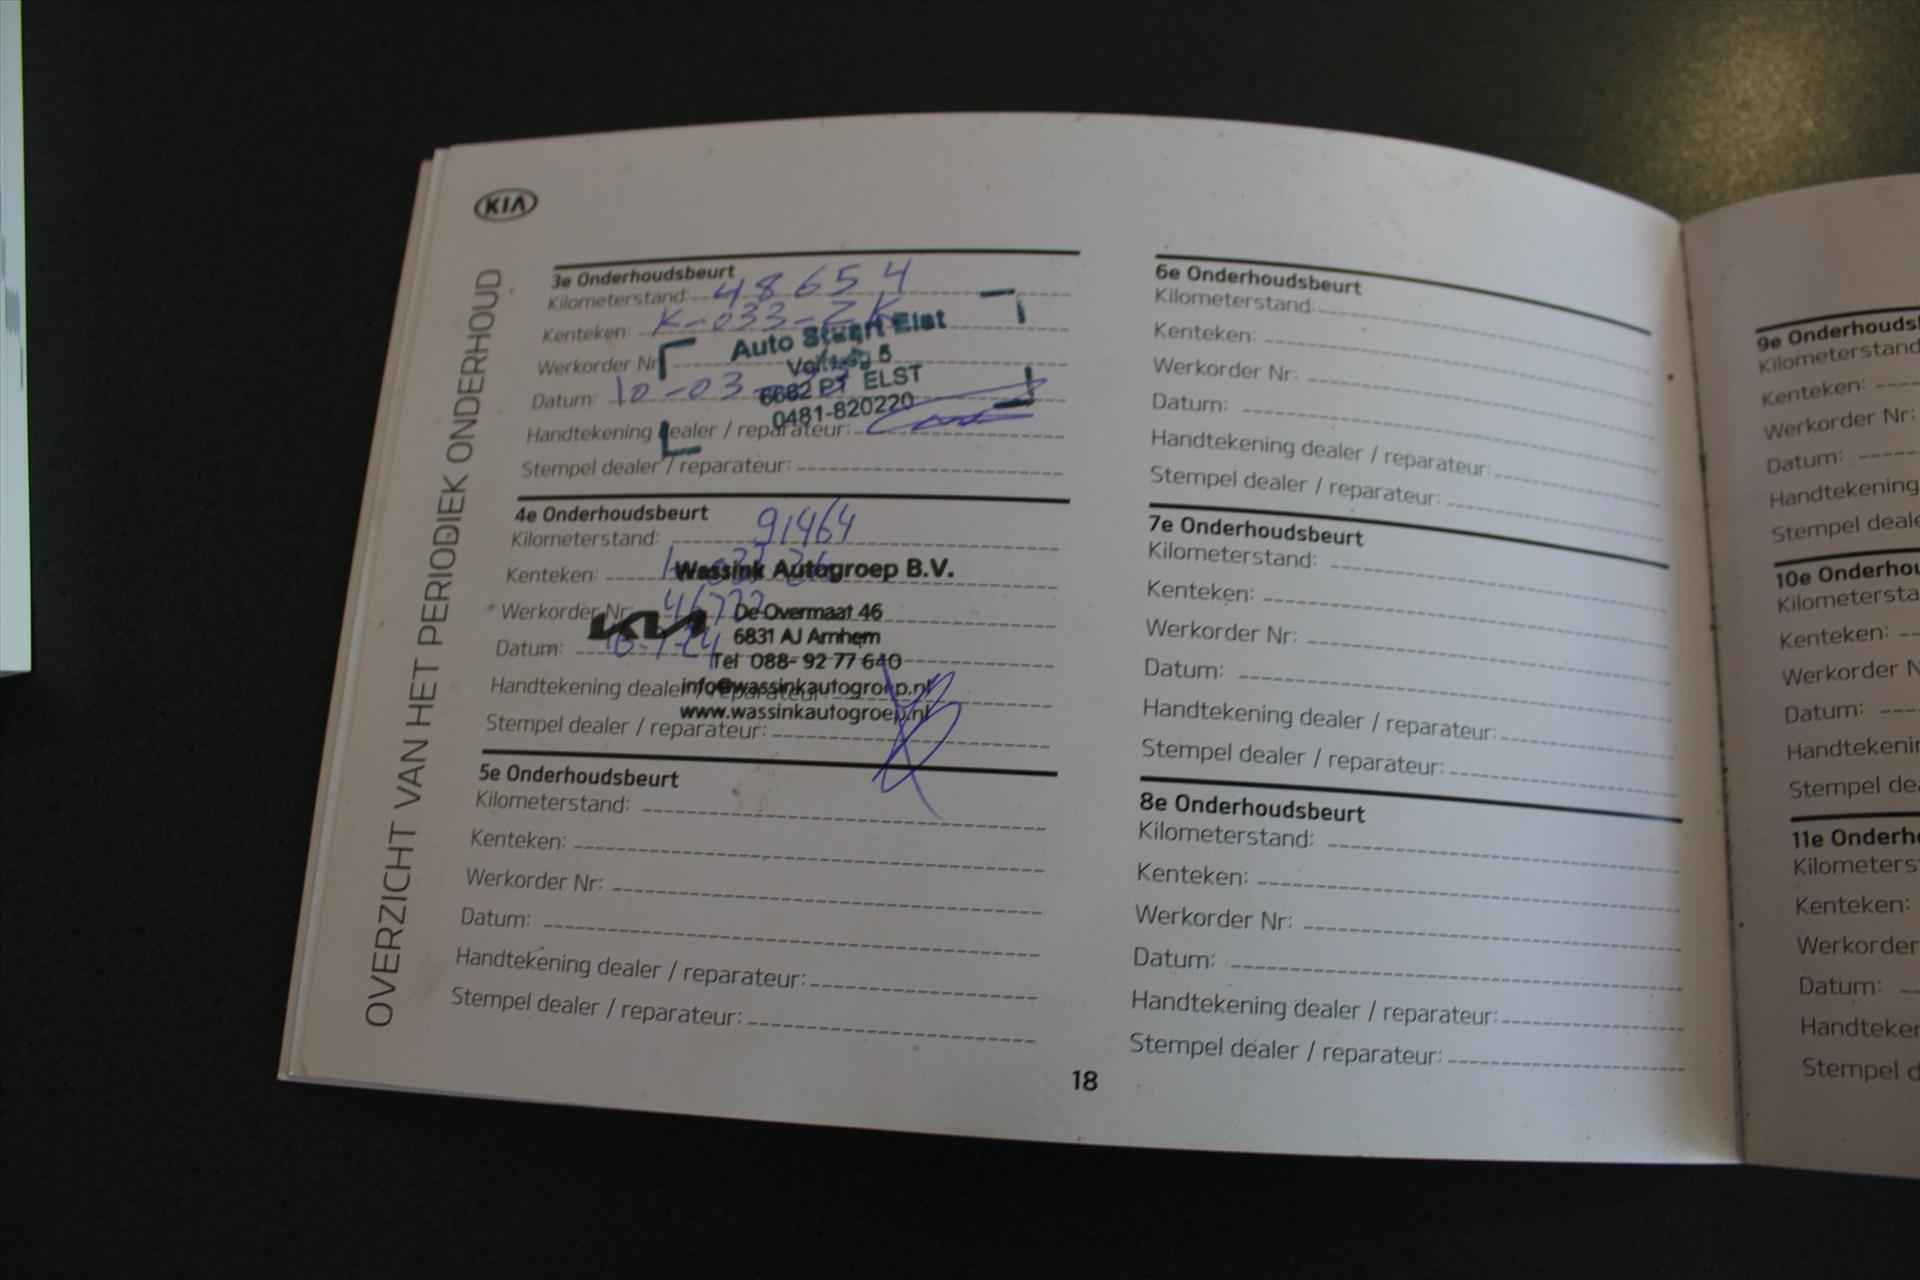 KIA
OVERZICHT VAN HET PERIODIEK ONDERHOUD
3e Onderhoudsbeurt
Kilometerstand: 48654
Kenteken: K-033-ZK
Werkorder Nr
Datum: 10-03
Handtekening dealer / reparateur:
Stempel dealer / reparateur:
Auto Stuart Elst
5
6662 PT ELST
0481-820220
4e Onderhoudsbeurt
Kilometerstand: 91464
Kenteken:
Werkorder Nr:
Datum:
Handtekening dealer / reparateur:
Stempel dealer / reparateur:
Wassink Autogroep B.V.
KIA
De Overmaat 46
6831 AJ Arnhem
Tel 088- 92 77 640
info@wassinkautogroep.nl
www.wassinkautogroep.nl
5e Onderhoudsbeurt
Kilometerstand:
Kenteken:
Werkorder Nr:
Datum:
Handtekening dealer / reparateur:
Stempel dealer / reparateur:
6e Onderhoudsbeurt
Kilometerstand:
Kenteken:
Werkorder Nr:
Datum:
Handtekening dealer / reparateur:
Stempel dealer / reparateur:
7e Onderhoudsbeurt
Kilometerstand:
Kenteken:
Werkorder Nr:
Datum:
Handtekening dealer / reparateur:
Stempel dealer / reparateur:
8e Onderhoudsbeurt
Kilometerstand:
Kenteken:
Werkorder Nr:
Datum:
Handtekening dealer / reparateur:
Stempel dealer / reparateur:
18
9e Onderhouds
Kilometerstand
Kenteken:
Werkorder Nr:
Datum:
Handtekening
Stempel deale
10e Onderhou
Kilometersta
Kenteken:
Werkorder N
Datum:
Handtekenin
Stempel dea
11e Onderh
Kilometers
Kenteken:
Werkorder
Datum:
Handteken
Stempel d